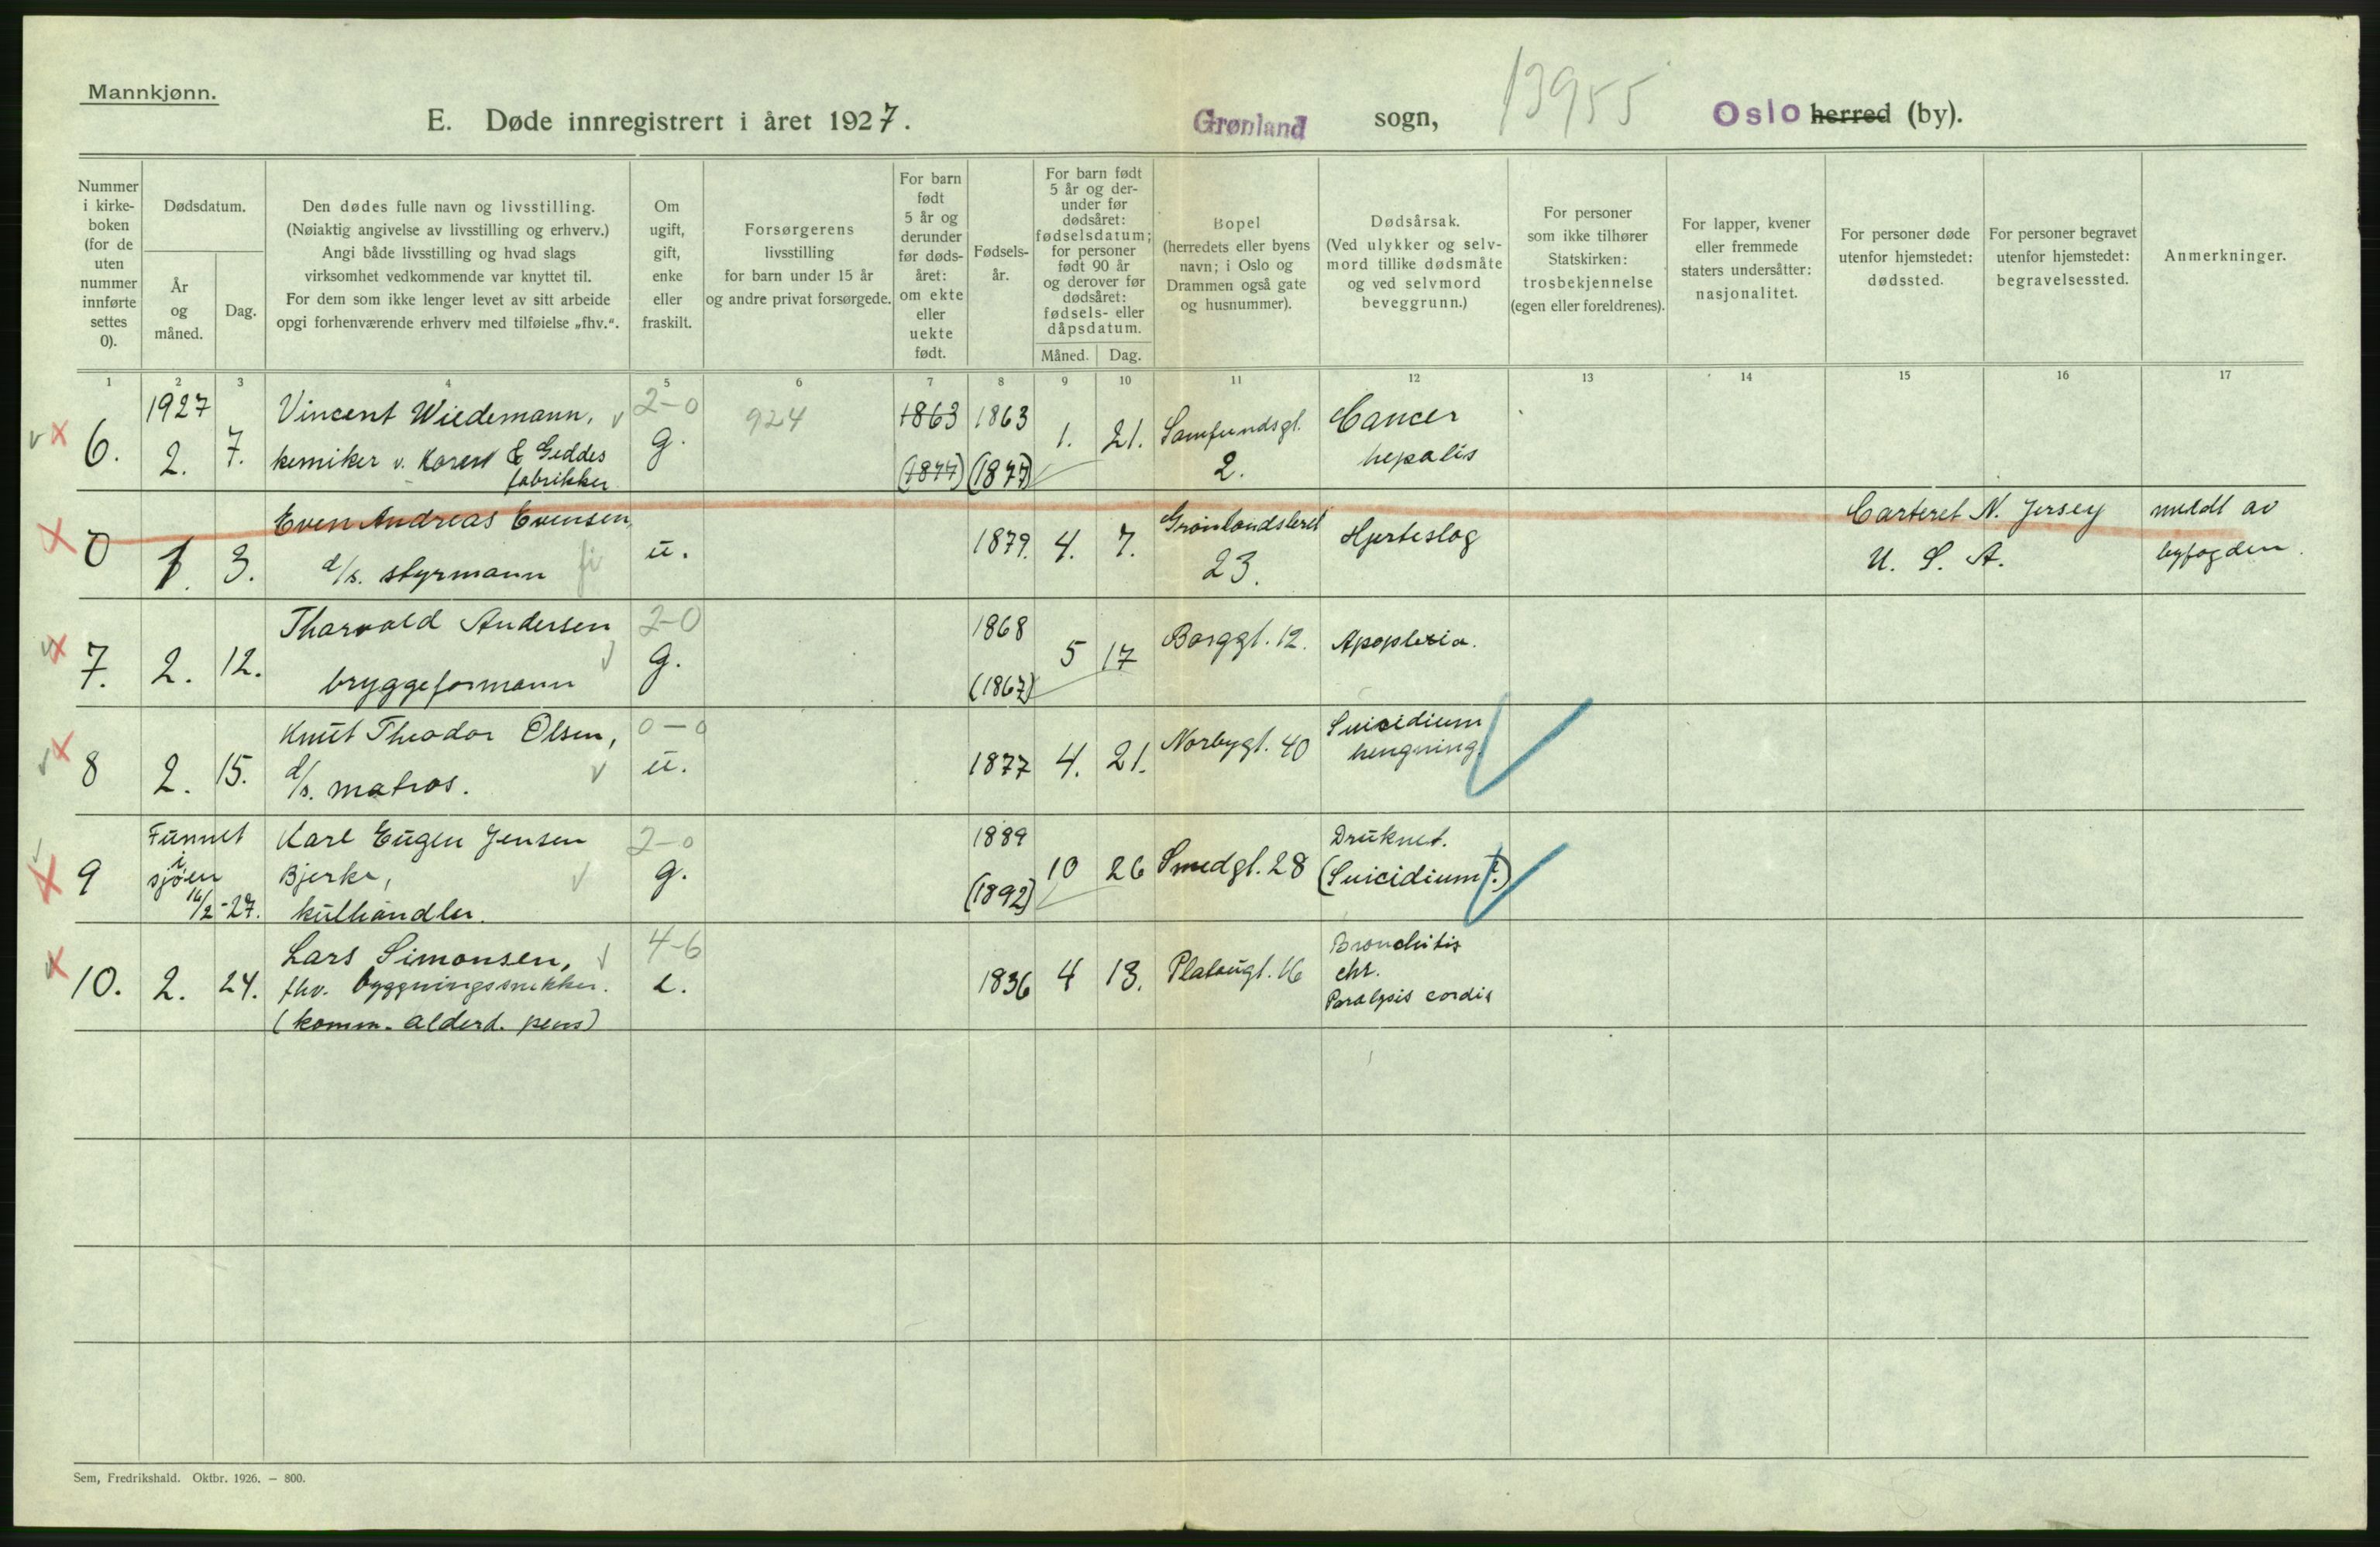 Mannkjønn.
E. Døde innregistrert i året 1927.
Grønland sogn,
13955
Oslo herred (by).
Nummer
i kirke-
boken
(for de
uten
nummer
innførte
settes
0).
Dødsdatum.
År
og
måned.
Dag.
Den dødes fulle navn og livsstilling.
(Nøiaktig angivelse av livsstilling og erhverv.)
Angi både livsstilling og hvad slags
virksomhet vedkommende var knyttet til.
For dem som ikke lenger levet av sitt arbeide
opgi forhenværende erhverv med tilføielse „fhv.“.
Om
ugift,
gift,
enke
eller
fraskilt.
Forsørgerens
livsstilling
for barn under 15 år
og andre privat forsørgede.
For barn
født
5 år og
derunder
før døds-
året:
om ekte
eller
uekte
født.
Fødsels-
år.
For barn født
5 år og der-
under før
dødsåret:
fødselsdatum;
for personer
født 90 år
og derover før
dødsåret:
fødsels- eller
dåpsdatum.
Måned. Dag.
Bopel
(herredets eller byens
navn; i Oslo og
Drammen også gate
og husnummer).
Dødsårsak.
(Ved ulykker og selv-
mord tillike dødsmåte
og ved selvmord
beveggrunn.)
For personer
som ikke tilhører
Statskirken:
trosbekjennelse
(egen eller foreldrenes).
For lapper, kvener
eller fremmede
staters undersåtter:
nasjonalitet.
For personer døde
utenfor hjemstedet:
dødssted.
For personer begravet
utenfor hjemstedet:
begravelsessted.
Anmerkninger.
1 2 3 4 5 6 7 8 9 10 11 12 13 14 15 16 17
6.
1927
2. 7.
Vincent Wiedemann,
kemiker v. & Geddes
fabrikker
2-0
g.
924
1863
(1877)
1863
(1877)
1. 21.
Samfundsgt.
2.
Cancer
hepatis
0
1. 3.
Even Andreas Evensen,
d/s. styrmann
fi
u.
1879. 4. 7.
Grønlandsleret
23.
Hjerteslag
Carteret N. Jersey
U. S. A.
meldt av
byfogden.
7.
2. 12.
Tharvald Andersen
bryggeformann
2-0
g.
1868
(1867)
5 17
Borggt. 12.
Apoplexia.
8
2. 15.
Knut Theodor Olsen,
d/s. matros.
0-0
u.
1877 4. 21.
Norbygt. 40
Suicidium
hengning.
9
Funnet
i
sjøen
16/2-27.
Karl Eugen Jensen
Bjerke,
kullhandler.
2-0
g.
1889
(1892)
10 26
Smedgt. 28
Druknet.
(Suicidium?)
10.
2. 24.
Lars Simonsen,
fhv. bygningssnekker.
(komm. alderd. pens)
4-6
e.
1836 4 13.
Platougt. 16
Bronchitis
chr.
Paralysis cordis
Sem, Fredrikshald. Oktbr. 1926. — 800.